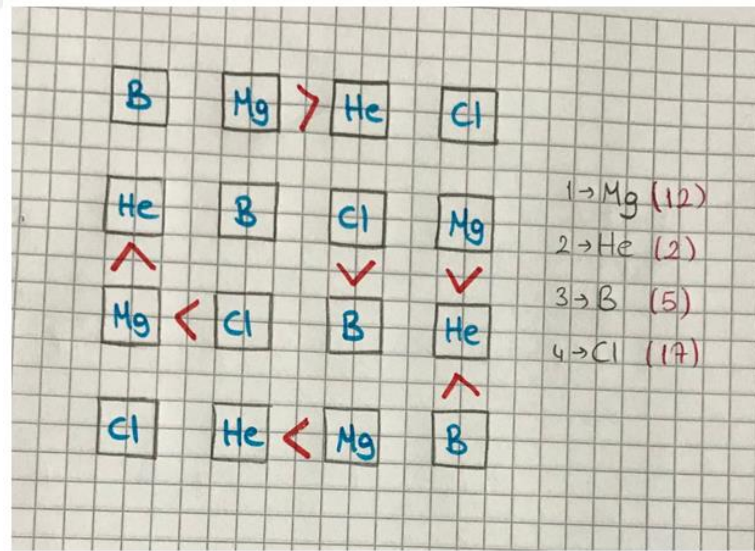 B Mg > He Cl
He B Cl Mg
∧ ∨ ∨
Mg < Cl B He
∧
Cl He < Mg B
1→Mg (12)
2→He (2)
3→B (5)
4→Cl (17)